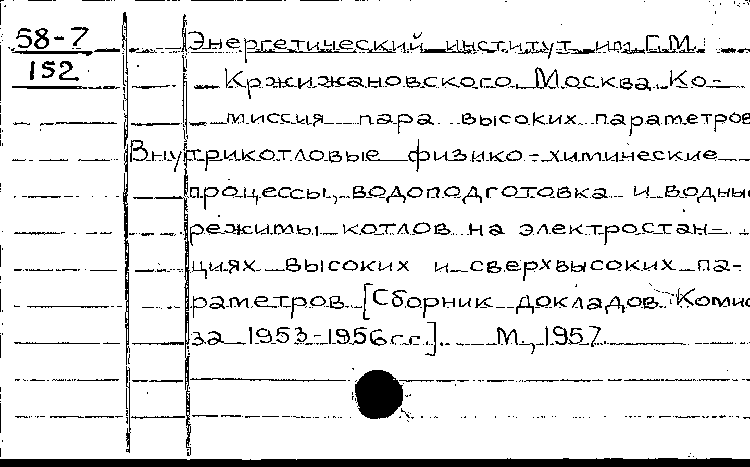 58-7
152
Энергетический институт им. Г.М.
Кржижановского, Москва. Ко-
миссия пара высоких параметров
Внутрикотловые физико-химические
процессы, водоподготовка и водны
режимы котлов на электростан-
циях высоких и сверхвысоких па-
раметров [Сборник докладов Комис
за 1953-1956гг.]. М., 1957.